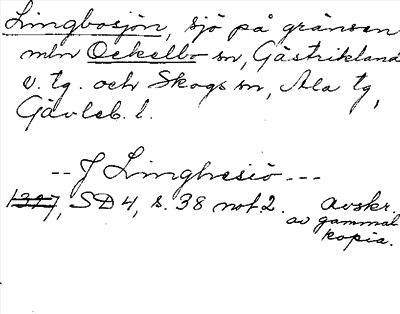 Lingbosjön, sjö på gränsen
mln Ockelbo sn, Gästrikland
v. tg. och Skogs sn, Ala tg,
Gävleb. l.
-- J Linghesiö ---
1327, SD 4, s. 38 not 2. avskr.
av gammal
kopia.